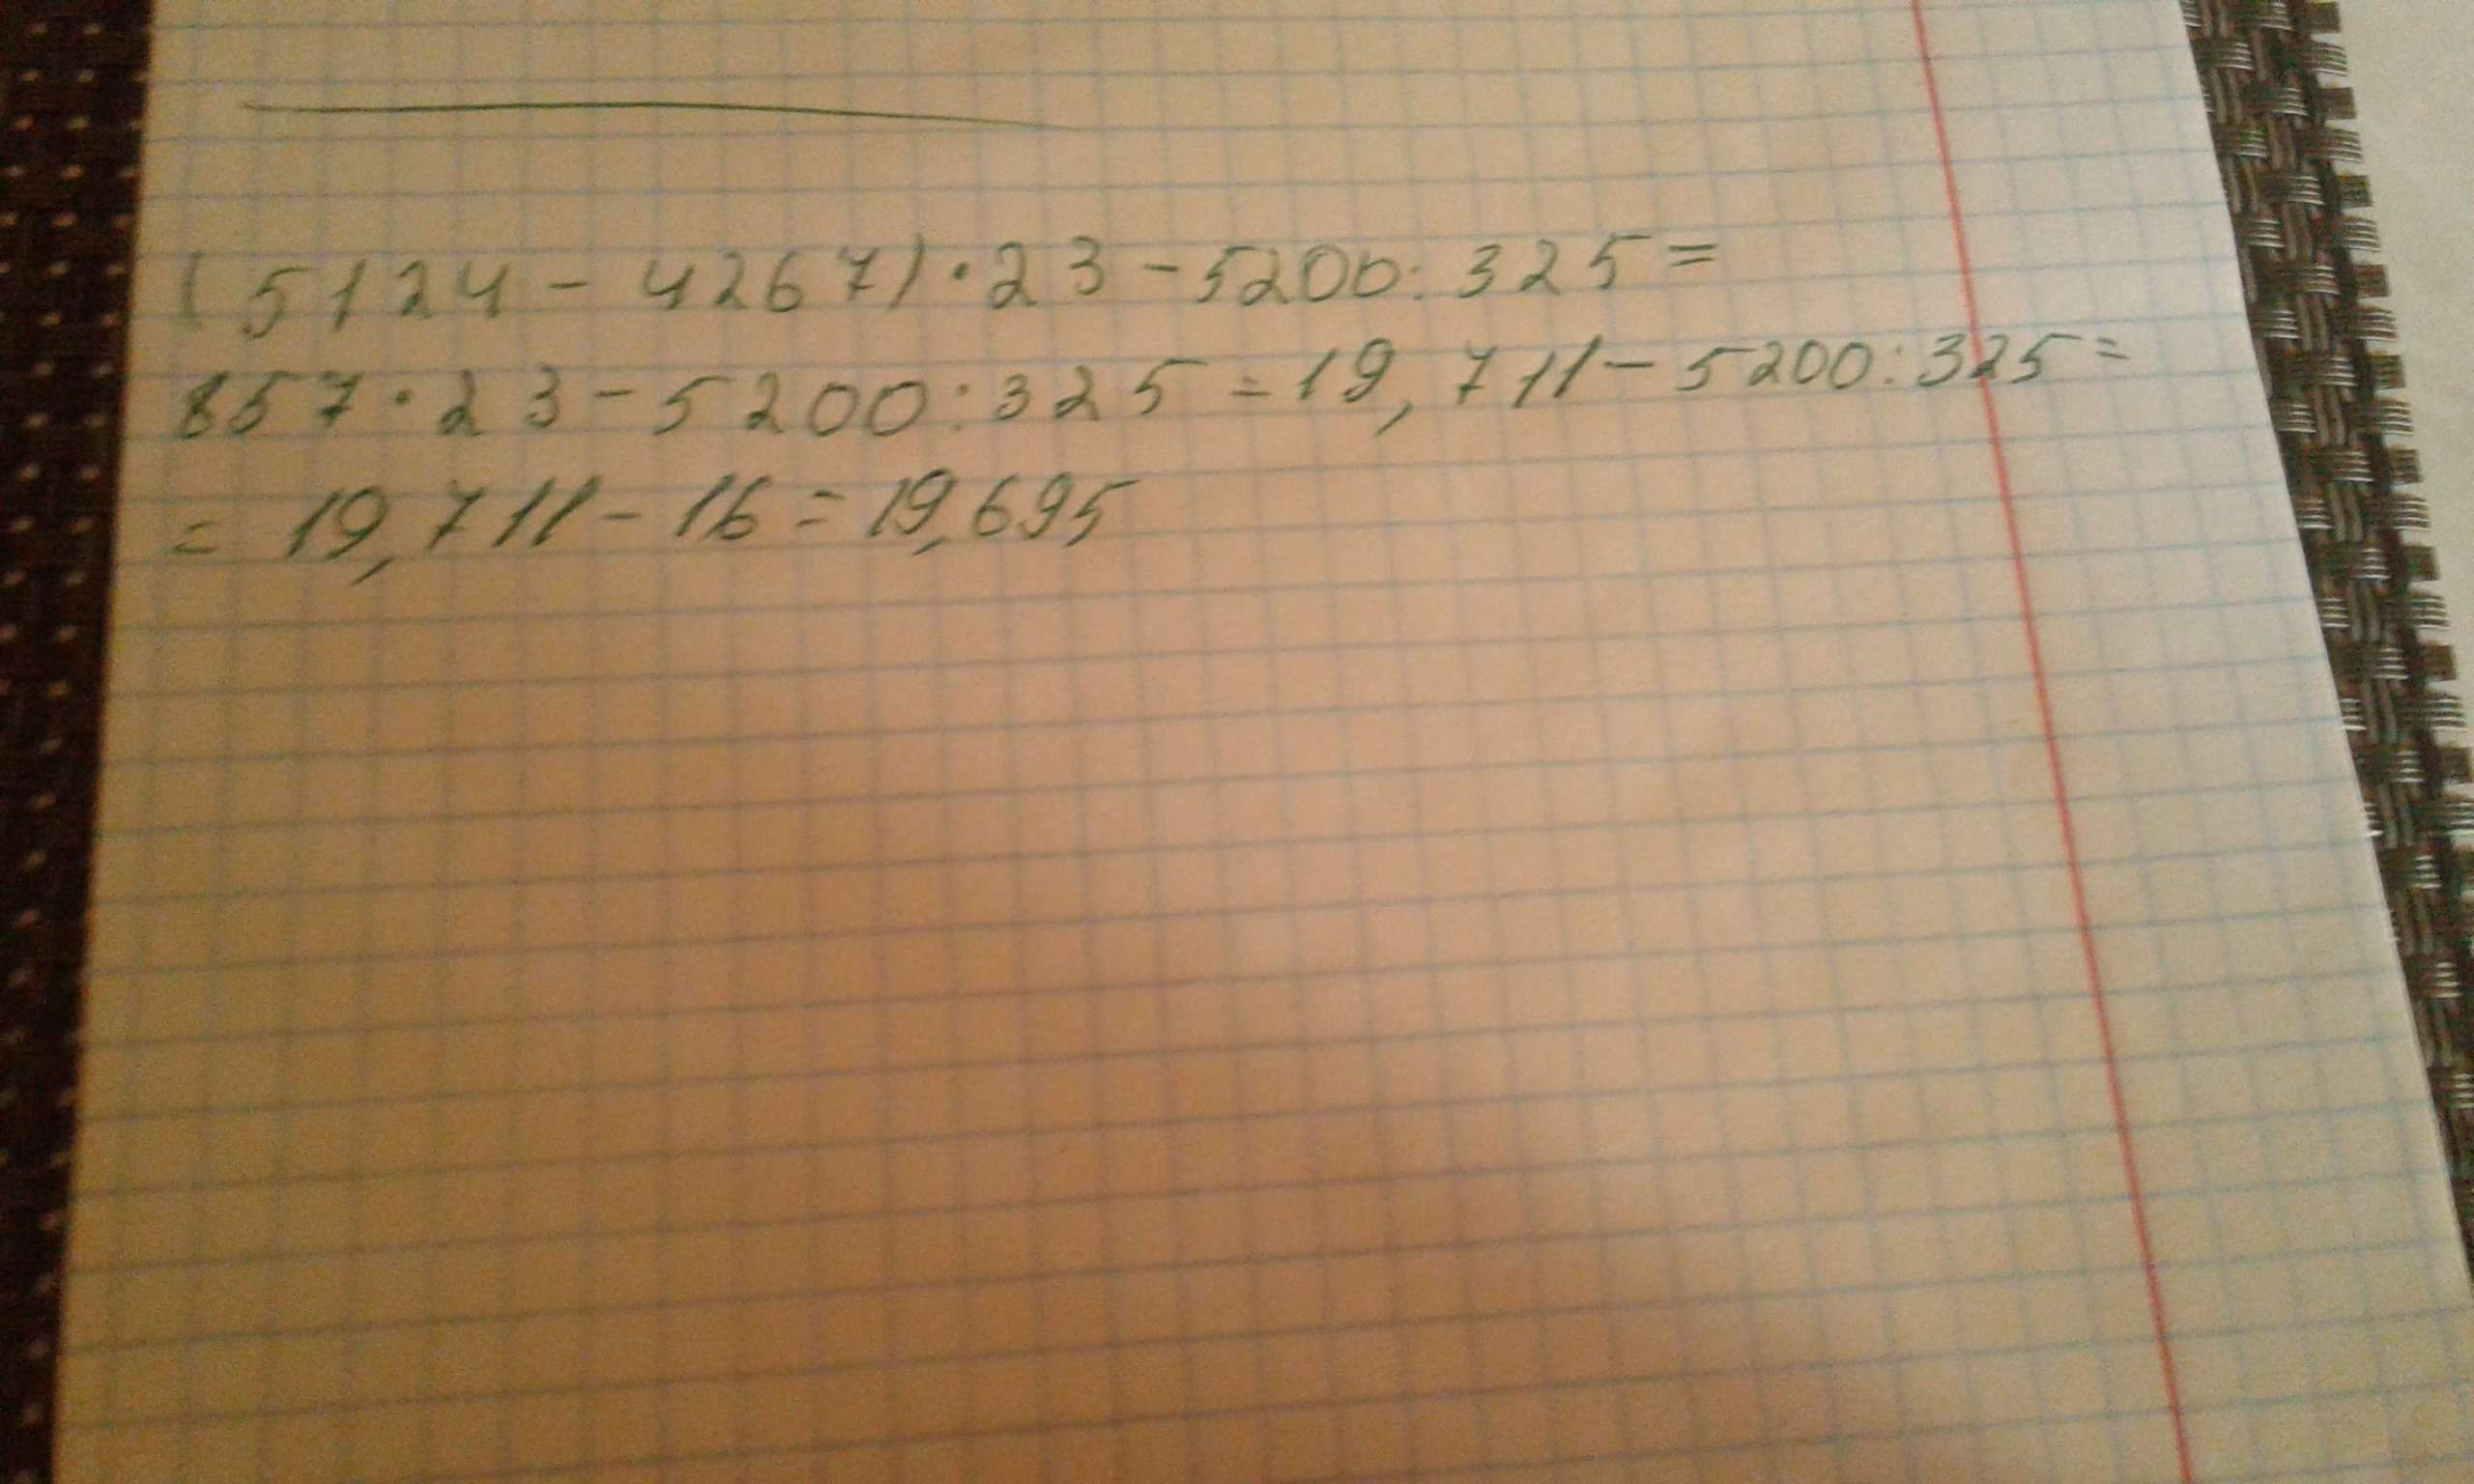 (5124 - 4267) · 23 - 5200 : 325 =
857 · 23 - 5200 : 325 = 19,711 - 5200 : 325 =
= 19,711 - 16 = 19,695